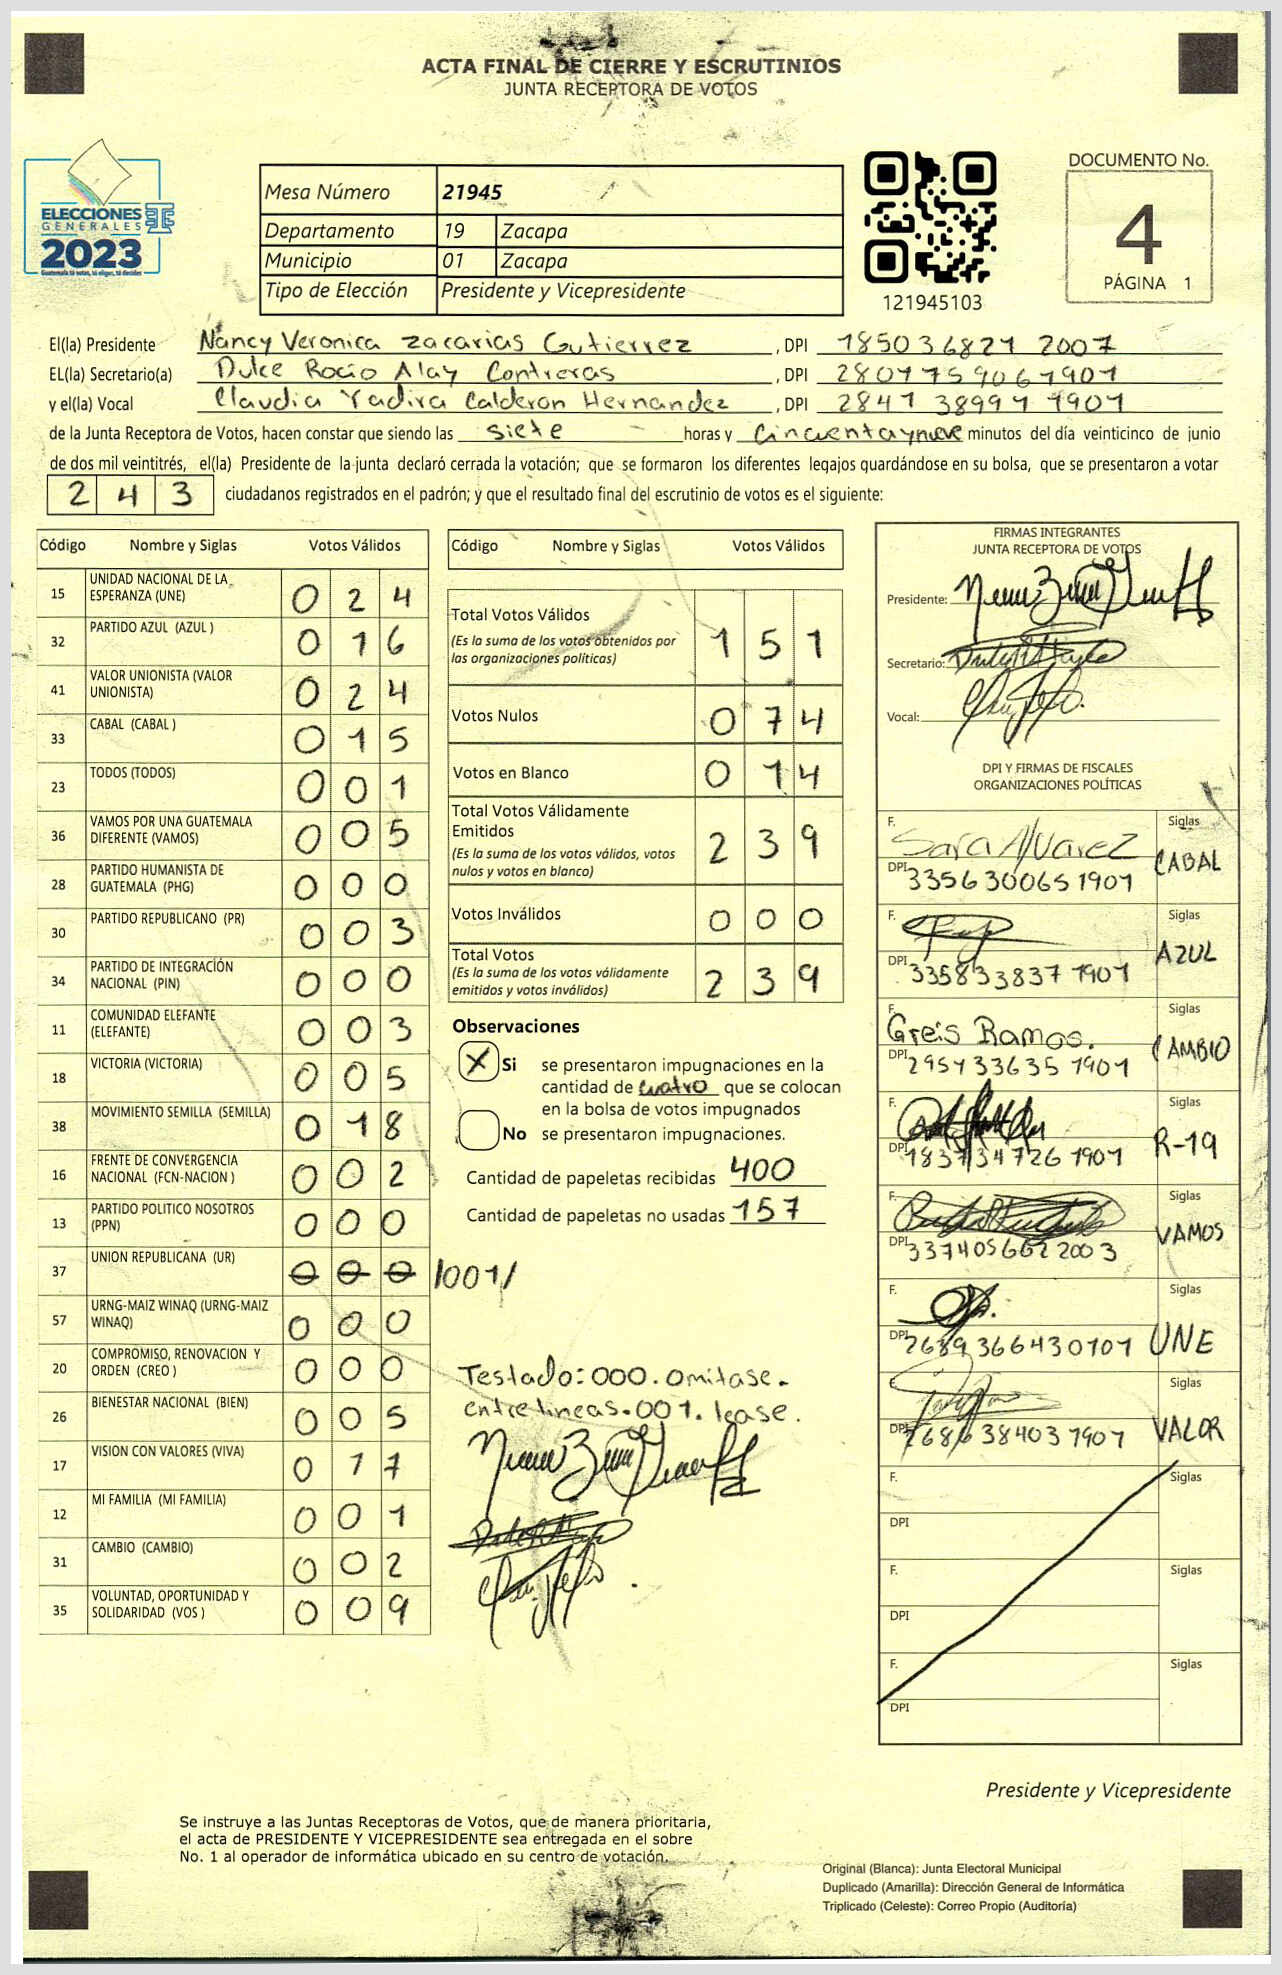 ACTA FINAL DE CIERRE Y ESCRUTINIOS
JUNTA RECEPTORA DE VOTOS
ELECCIONES
GENERALES
2023
Guatemala tú votas, tú eliges, tú decides
Mesa Número 21945
Departamento 19 Zacapa
Municipio 01 Zacapa
Tipo de Elección Presidente y Vicepresidente
121945103
DOCUMENTO No.
4
PÁGINA 1
El(la) Presidente Nancy Veronica Zacarias Gutierrez , DPI 185036821 2007
EL(la) Secretario(a) Dulce Rocio Alay Contreras , DPI 2801759061901
y el(la) Vocal Claudia Yadira Calderon Hernandez , DPI 2841 38991 1901
de la Junta Receptora de Votos, hacen constar que siendo las siete horas y cincuentaynueve minutos del día veinticinco de junio
de dos mil veintitrés, el(la) Presidente de la junta declaró cerrada la votación; que se formaron los diferentes legajos quardándose en su bolsa, que se presentaron a votar
243 ciudadanos registrados en el padrón; y que el resultado final del escrutinio de votos es el siguiente:
Código Nombre y Siglas Votos Válidos
15 UNIDAD NACIONAL DE LA ESPERANZA (UNE) 024
32 PARTIDO AZUL (AZUL ) 016
41 VALOR UNIONISTA (VALOR UNIONISTA) 024
33 CABAL (CABAL ) 015
23 TODOS (TODOS) 001
36 VAMOS POR UNA GUATEMALA DIFERENTE (VAMOS) 005
28 PARTIDO HUMANISTA DE GUATEMALA (PHG) 000
30 PARTIDO REPUBLICANO (PR) 003
34 PARTIDO DE INTEGRACIÓN NACIONAL (PIN) 000
11 COMUNIDAD ELEFANTE (ELEFANTE) 003
18 VICTORIA (VICTORIA) 005
38 MOVIMIENTO SEMILLA (SEMILLA) 018
16 FRENTE DE CONVERGENCIA NACIONAL (FCN-NACION ) 002
13 PARTIDO POLITICO NOSOTROS (PPN) 000
37 UNION REPUBLICANA (UR) 000 /001/
57 URNG-MAIZ WINAQ (URNG-MAIZ WINAQ) 000
20 COMPROMISO, RENOVACION Y ORDEN (CREO ) 000
26 BIENESTAR NACIONAL (BIEN) 005
17 VISION CON VALORES (VIVA) 017
12 MI FAMILIA (MI FAMILIA) 001
31 CAMBIO (CAMBIO) 002
35 VOLUNTAD, OPORTUNIDAD Y SOLIDARIDAD (VOS ) 009
Código Nombre y Siglas Votos Válidos
Total Votos Válidos 151
(Es la suma de los votos obtenidos por
las organizaciones políticas)
Votos Nulos 074
Votos en Blanco 014
Total Votos Válidamente
Emitidos 239
(Es la suma de los votos válidos, votos
nulos y votos en blanco)
Votos Inválidos 000
Total Votos 239
(Es la suma de los votos válidamente
emitidos y votos inválidos)
Observaciones
X Si se presentaron impugnaciones en la
cantidad de cuatro que se colocan
en la bolsa de votos impugnados
No se presentaron impugnaciones.
Cantidad de papeletas recibidas 400
Cantidad de papeletas no usadas 157
Testado:000.omitase.
entrelineas.001.lease.
FIRMAS INTEGRANTES
JUNTA RECEPTORA DE VOTOS
Presidente:
Secretario:
Vocal:
DPI Y FIRMAS DE FISCALES
ORGANIZACIONES POLÍTICAS
F. Sara Alvarez Siglas
DPI 3356300651901 CABAL
F. Siglas
DPI 335833837 1901 AZUL
F. Greis Ramos. Siglas
DPI 295733635 1901 CAMBIO
F. Siglas
DPI 183734726 1901 R-19
F. Siglas
DPI 337405662 2003 VAMOS
F. Siglas
DPI 2689366430101 UNE
F. Siglas
DPI 2686384031901 VALOR
F. Siglas
DPI
F. Siglas
DPI
F. Siglas
DPI
Presidente y Vicepresidente
Se instruye a las Juntas Receptoras de Votos, que de manera prioritaria,
el acta de PRESIDENTE Y VICEPRESIDENTE sea entregada en el sobre
No. 1 al operador de informática ubicado en su centro de votación.
Original (Blanca): Junta Electoral Municipal
Duplicado (Amarilla): Dirección General de Informática
Triplicado (Celeste): Correo Propio (Auditoría)